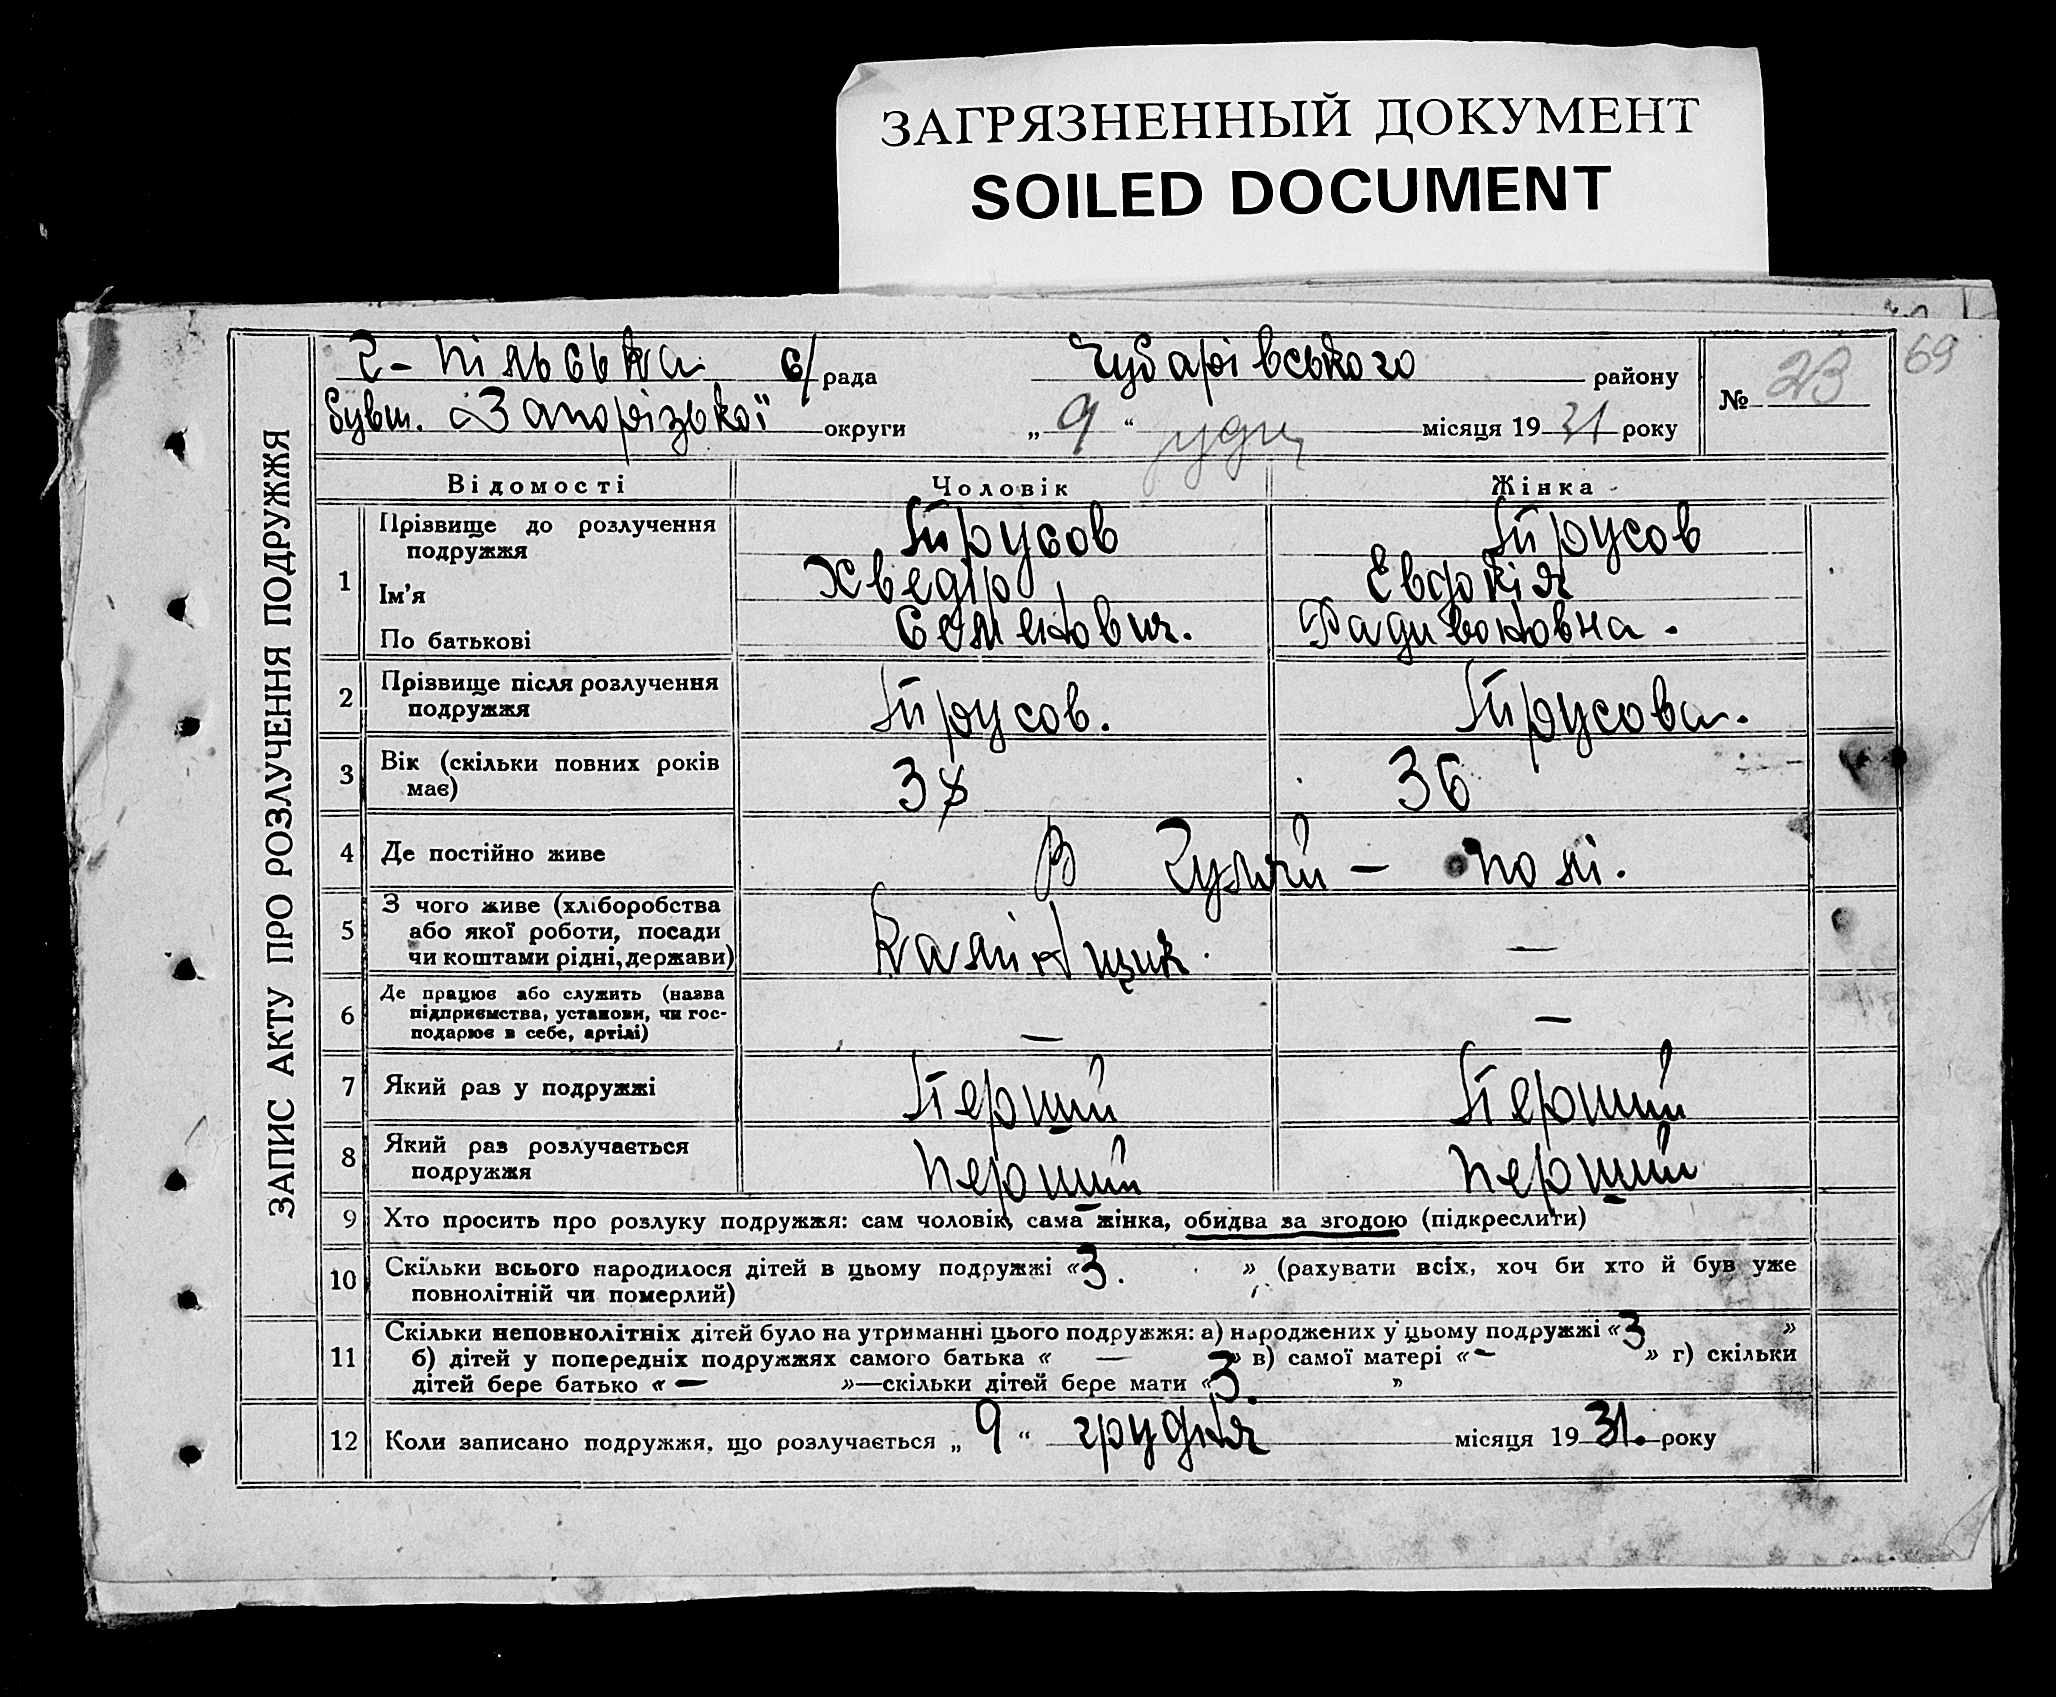 ЗАГРЯЗНЕННЫЙ ДОКУМЕНТ
SOILED DOCUMENT
69
ЗАПИС АКТУ ПРО РОЗЛУЧЕННЯ ПОДРУЖЖЯ
Г-пільська с/рада Чубарівського району
№ 23
бувш. Запорізької округи „9“ грудн місяця 1931 року
Відомості Чоловік Жінка
1 Прізвище до розлучення подружжя Трусов Трусов
Ім'я Хведір Евдокія
По батькові Семенович.
2 Прізвище після розлучення подружжя Трусов. Трусова.
3 Вік (скільки повних років має) 38 36
4 Де постійно живе В Гуляй-полі.
5 З чого живе (хліборобства або якої роботи, посади чи коштами рідні, держави) —
6 Де працює або служить (назва підприємства, установи, чи господарює в себе, артілі) — —
7 Який раз у подружжі Перший Перший
8 Який раз розлучається подружжя перший перший
9 Хто просить про розлуку подружжя: сам чоловік, сама жінка, обидва за згодою (підкреслити)
10 Скільки всього народилося дітей в цьому подружжі «3.» (рахувати всіх, хоч би хто й був уже
повнолітній чи померлий)
11 Скільки неповнолітніх дітей було на утриманні цього подружжя: а) народжених у цьому подружжі «3»
б) дітей у попередніх подружжях самого батька «—» в) самої матері «—» г) скільки
дітей бере батько «—»—скільки дітей бере мати «3.»
12 Коли записано подружжя, що розлучається „9“ грудня місяця 1931. року